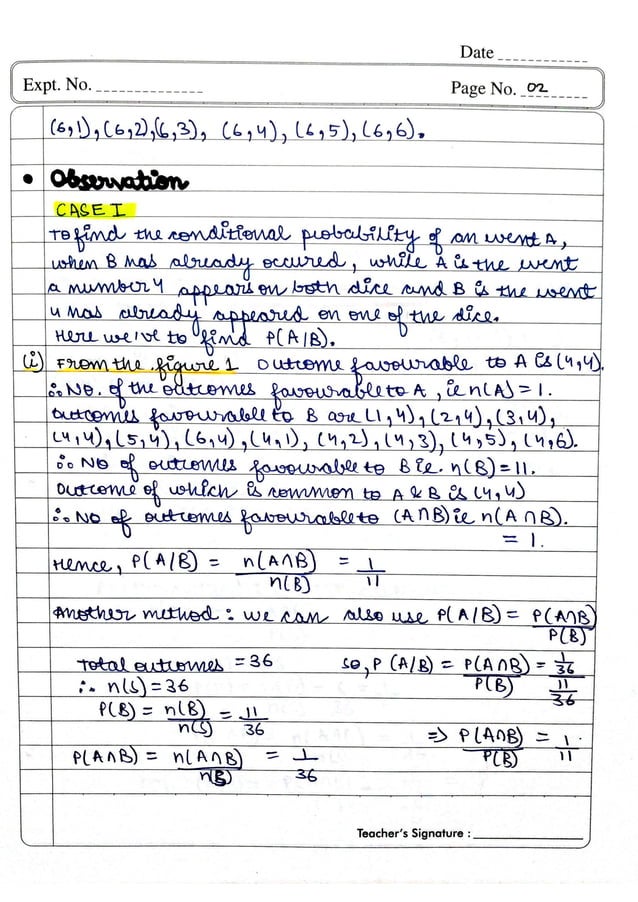 Date
Expt. No.
Page No. 02
(6,1),(6,2),(6,3), (6,4), (6,5),(6,6).
• Observation
CASE I
To find the conditional probability of an event A,
when B has already occured, while A is the event
a number 4 appears on both dice and B is the event
4 has already appeared on one of the dice.
Here we've to find P(A/B).
(i) From the figure 1 Outcome favourable to A is (4,4).
∴ No. of the outcomes favourable to A, ie n(A) = 1.
Outcomes favourable to B are (1,4),(2,4),(3,4),
(4,4),(5,4),(6,4),(4,1), (4,2),(4,3),(4,5),(4,6).
∴ No of outcomes favourable to B ie. n(B) = 11.
Outcome of which is common to A & B is (4,4)
∴ No of outcomes favourable to (A∩B) ie n(A∩B).
= 1.
Hence, P(A/B) = n(A∩B)/n(B) = 1/11
Another method: We can also use P(A/B) = P(A∩B)/P(B)
Total outcomes = 36
∴ n(S) = 36
P(B) = n(B)/n(S) = 11/36
P(A∩B) = n(A∩B)/n(S) = 1/36
so, P(A/B) = P(A∩B)/P(B) = 1/36 / 11/36
⇒ P(A∩B)/P(B) = 1/11.
Teacher's Signature :